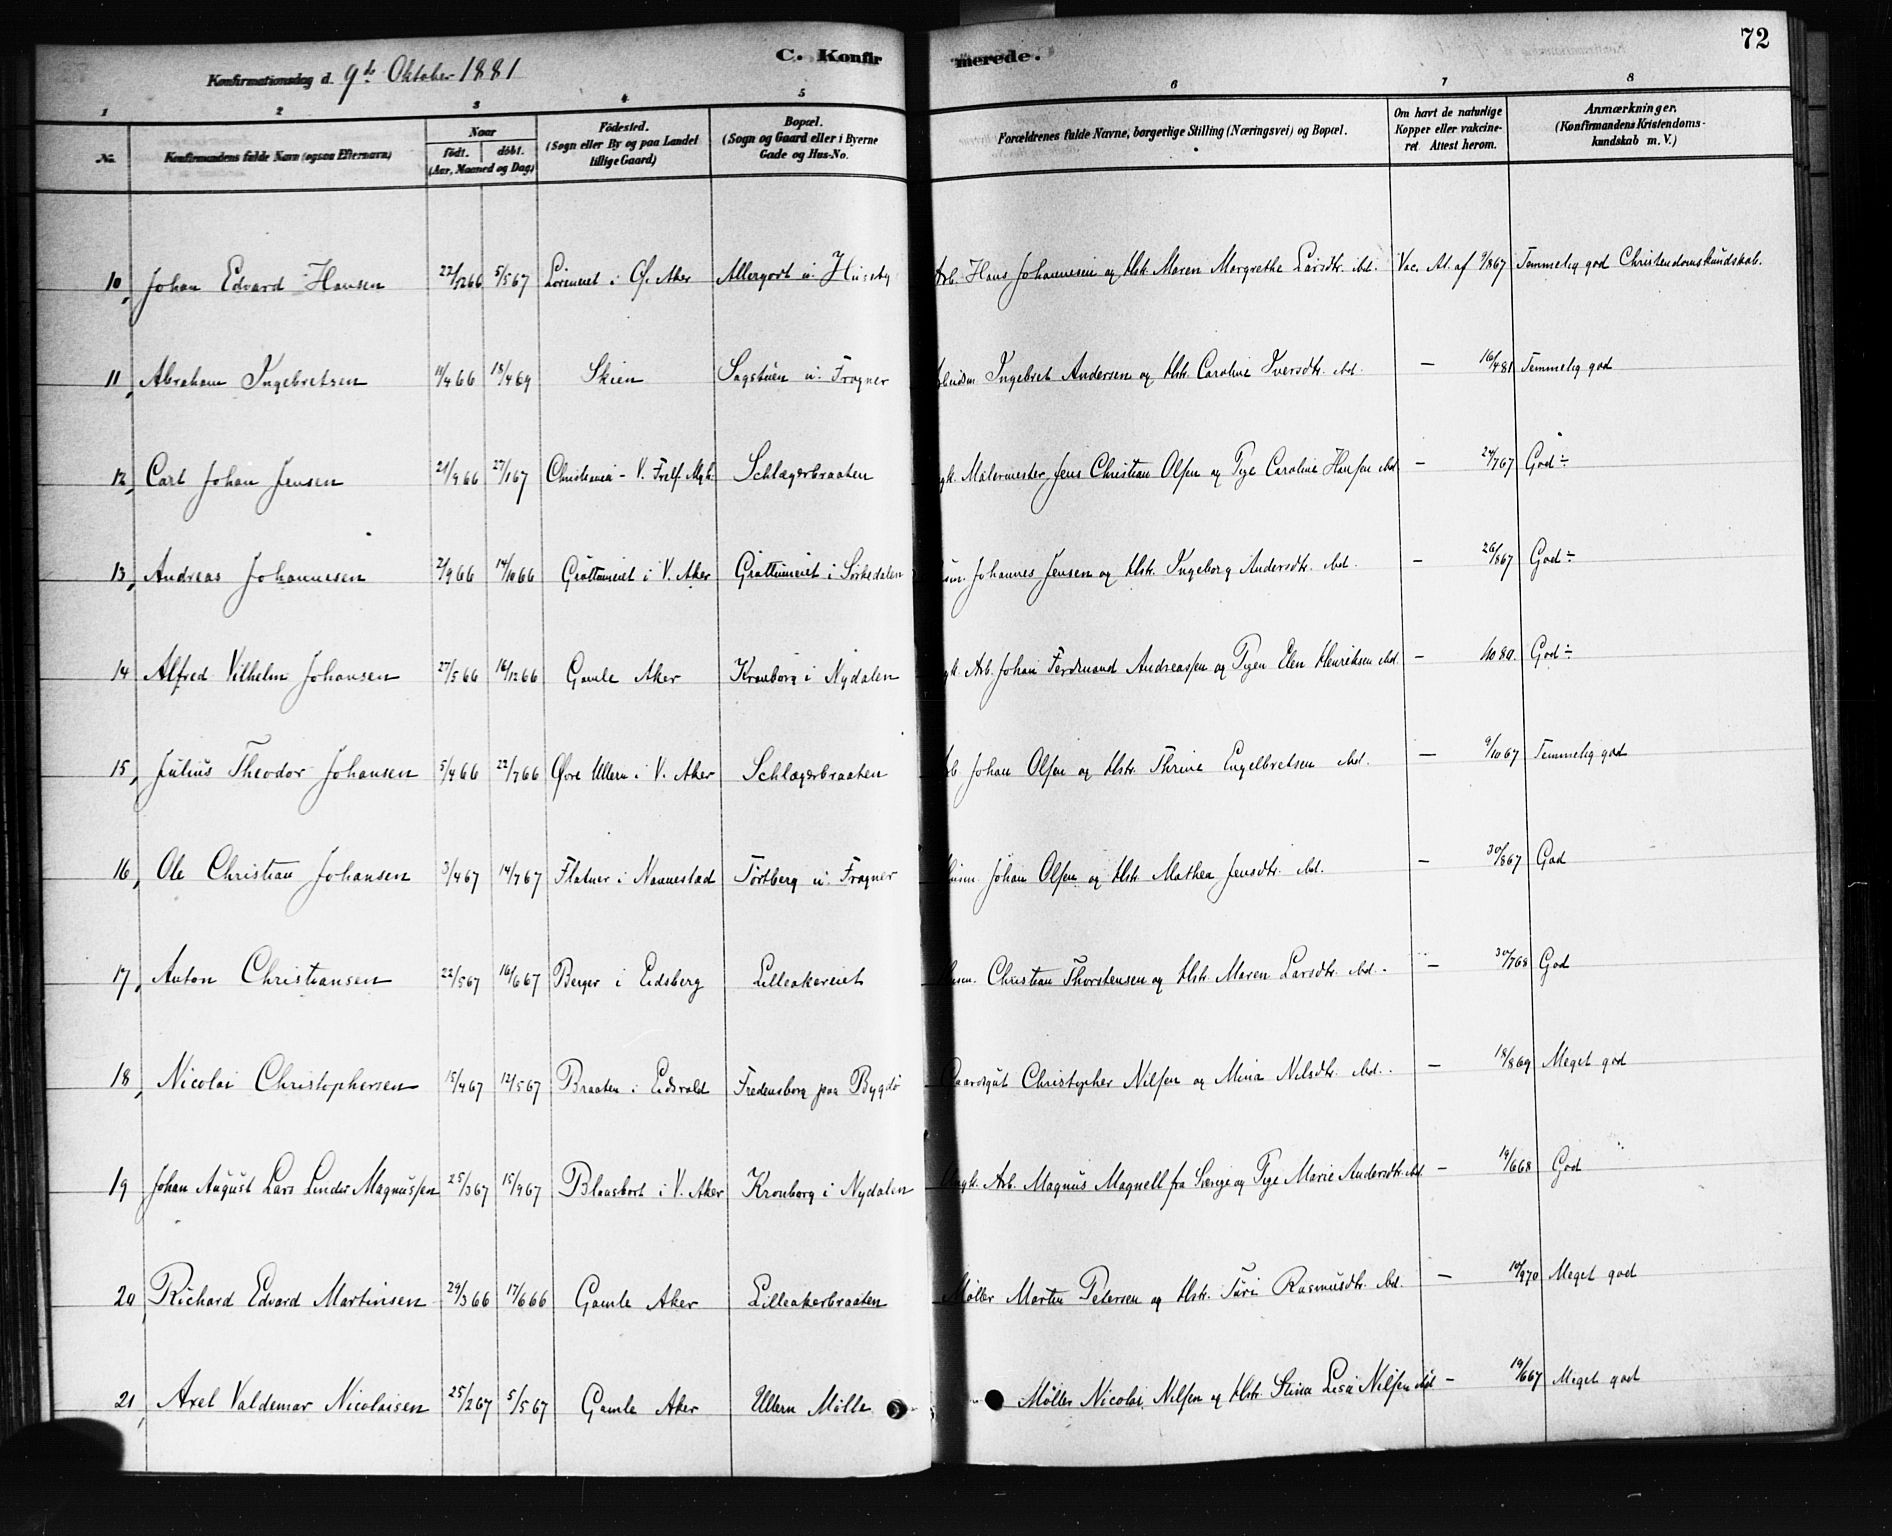 72
C. Konfirmerede.
Konfirmationsdag d. 9de Oktober 1881
1 2 3 4 5 6 7 8
No. Konfirmandens fulde Navn (ogsaa Efternavn) Naar født. døbt. (Aar, Maaned og Dag) Fødested. (Sogn eller By og paa Landet tillige Gaard) Bopæl. (Sogn og Gaard eller i Byerne Gade og Hus-No. Forældrenes fulde Navne, borgerlige Stilling (Næringsvei) og Bopæl. Om havt de naturlige Kopper eller vakcineret Attest herom. Anmærkninger. (Konfirmandens Kristendomskundskab m. V.)
10, Johan Edvard Hansen 22/12 66 5/5 67 Løreneiet i Ø. Aker u. Huseby Arb. Hans Johannesen og Hstr. Maren Margrethe Larsdtr. ibd. Vac. At. af /8 67 Temmelig god Christendomskundskab.
11, Abraham Ingebretsen 11/4 66 18/4 69 Skien Sagstuen u. Frogner Ingebret Andersen og Hstr. Caroline Iversdtr. ibd. — 16/4 81 Temmelig god
12, Carl Johan Jensen 21/9 66 27/1 67 Christiania - V. Frelf. Mgh. Schlagerbraaten Malermester Jens Christian Olsen og Pige Caroline Hansen ibd — 24/7 67 God ÷
13, Andreas Johannesen 2/9 66 14/10 66 Grøttumeiet i V. Aker Grøttumeiet i Sørkedalen Johannes Jensen og Hstr. Ingeborg Andersdtr. ibd. — 26/8 67 God ÷
14 Alfred Vilhelm Johansen 27/5 66 16/12 66 Gamle Aker Kronborg i Nydalen Arb. Johan Ferdinand Andreassen og Pigen Elen Henriksen ibd. — God ÷
15, Julius Theodor Johansen 5/4 66 22/7 66 Øvre Ullern i V. Aker Schlagerbraaten Johan Olsen og Hstr. Thrine Engelbretsen ibd. — 9/10 67 Temmelig god
16, Ole Christian Johansen 3/4 67 14/7 67 Flatner i Nannestad Tørtberg u. Frogner Husm. Johan Olsen og Hstr. Mathea Jensdtr. ibd. — 30/8 67 God
17, Anton Christiansen 22/5 67 16/6 67 Berger i Eidsberg Lilleakereiet Husm. Christian Thorstensen og Hstr. Maren Larsdtr. ibd. — 30/7 68 God
18, Nicolai Christophersen 15/4 67 12/5 67 Braaten i Eidsvold Fredensborg paa Bygdø Gaardsgut Christopher Nilsen og Mina Nilsdtr. ibd. — 18/8 69 Meget god
19 Johan August Lars Linder Magnussen 25/3 67 15/9 67 Blaasbort i V. Aker Kronborg i Nydalen Ungk. Arb. Magnus Magnell fra Sverige og Pige Marie Andersdtr. ibd. — 19/6 68 God
20, Richard Edvard Martinsen 29/3 66 17/6 66 Gamle Aker Lilleakerbraaten Møller Martin Petersen og Hstr. Turi Rasmusdtr. ibd. — 10/9 70 Meget god
21, Axel Valdemar Nicolaisen 25/2 67 5/5 67 Gamle Aker Ullern Mølle Møller Nicolai Nilsen og Hstr. Stina Lisa Nilsen ibd — 19/6 67 Meget god